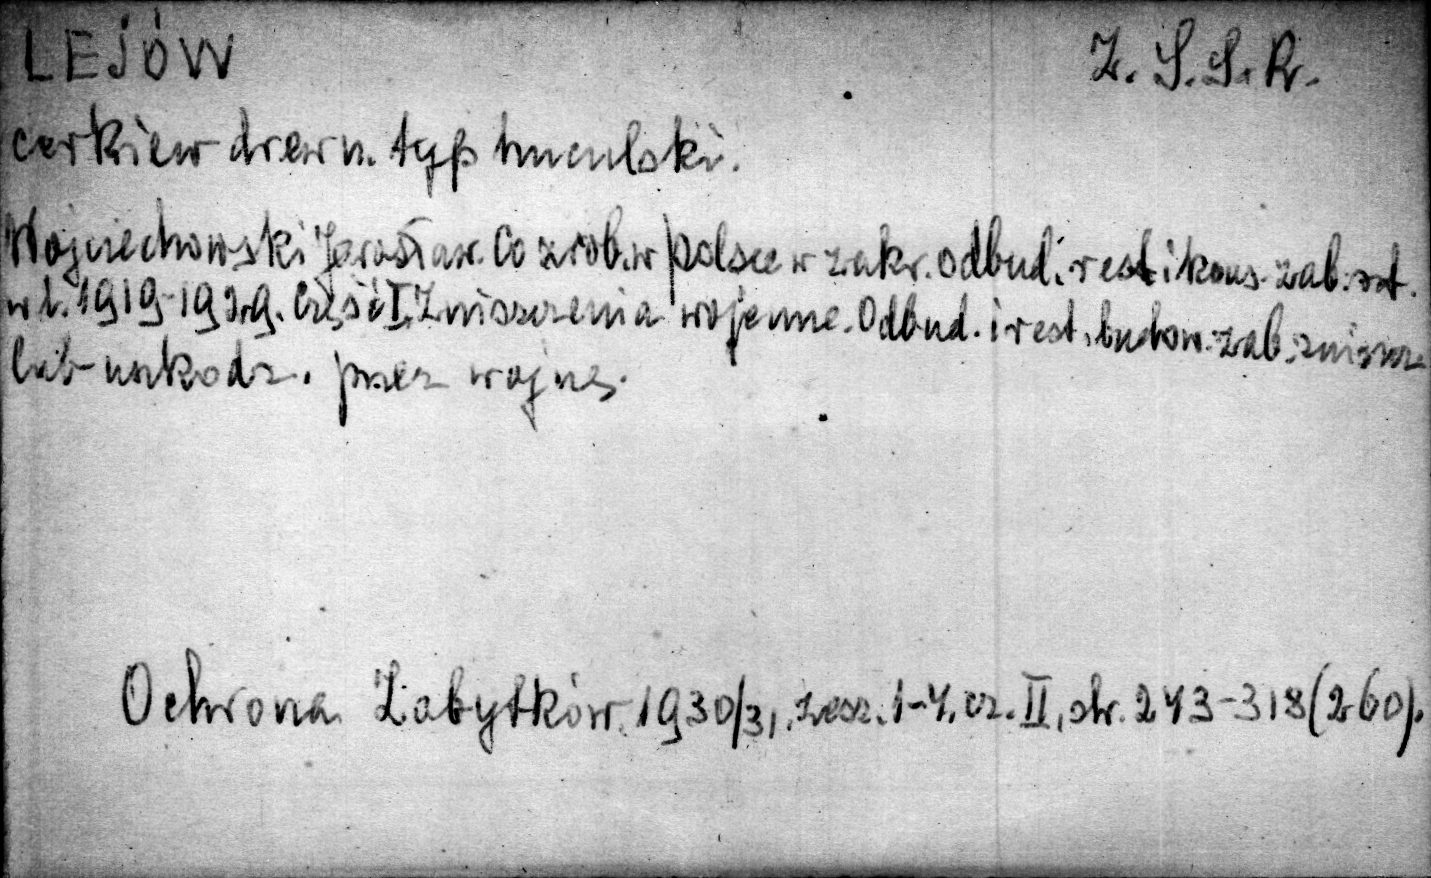 LEJÓW Z.S.S.R.
cerkiew drewn. typ huculski.
Wojciechowski Jarosław. Co zrob. w Polsce w zakr. odbud. rest. i kons. zab. szt.
w l. 1919-1929. Część I. Zniszczenia wojenne. Odbud. i rest. budow. zab. zniszcz
lub uszkodz. przez wojnę.
Ochrona Zabytków. 1930/31, zesz. 1-4. cz. II, str. 243-318 (260).